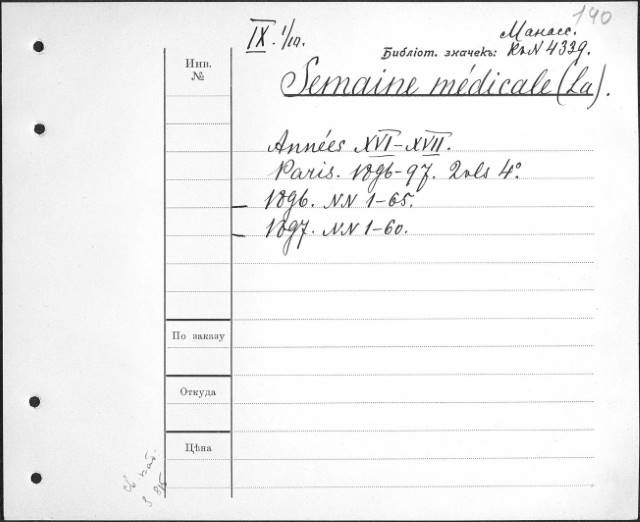 190
IX. 1/10.
Манасс.
Библіот. значекъ: К.N 4339.
Инв.
№
Semaine médicale (La).
Années XVI–XVII.
Paris. 1896–97. 2 vls 4°.
1896. NN 1–65.
1897. NN 1–60.
По заказу
Откуда
Цѣна